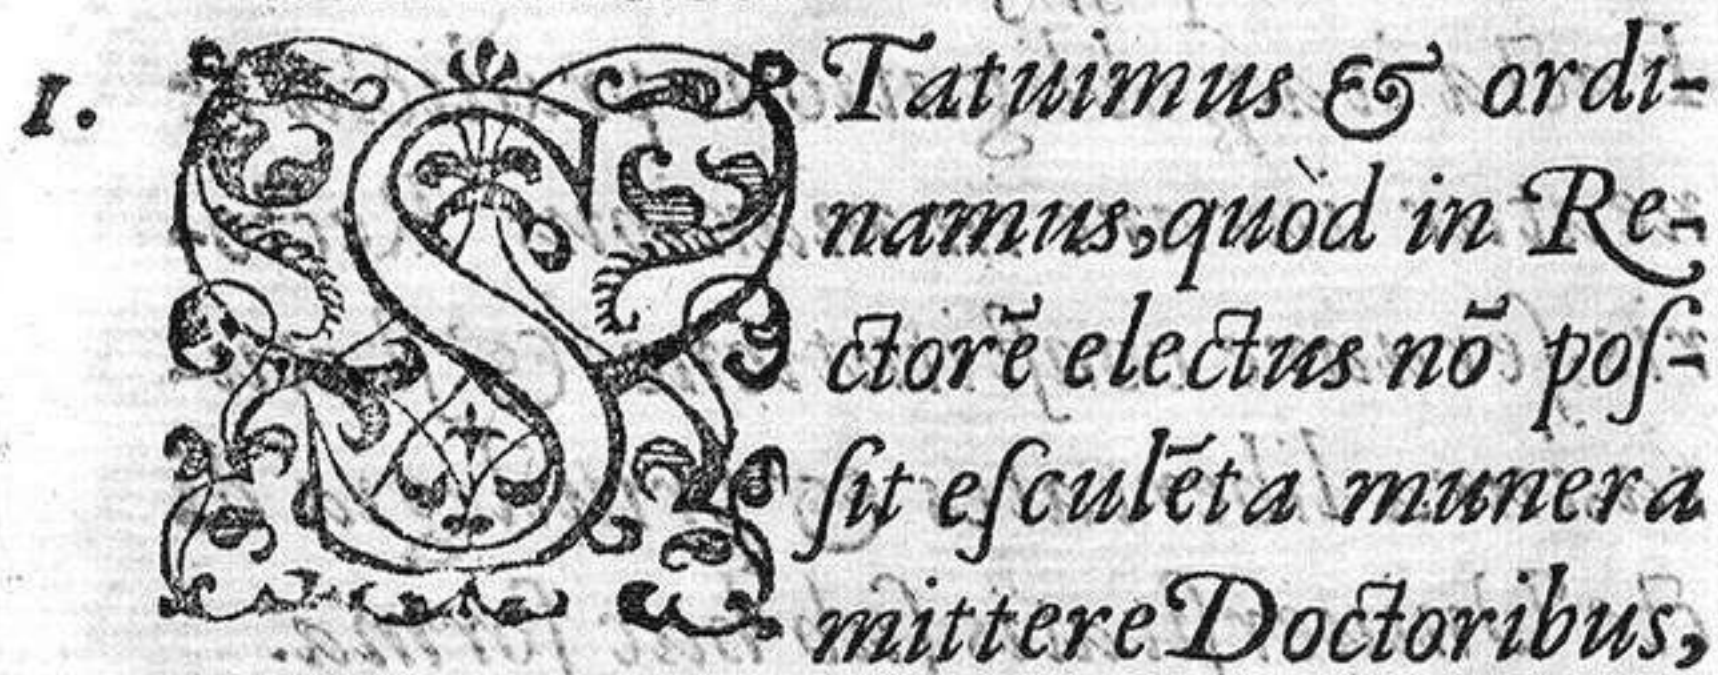 1. STatuimus & ordi-
namus, quòd in Re-
ctorē electus nō poſ-
ſit eſculēta munera
mittere Doctoribus,